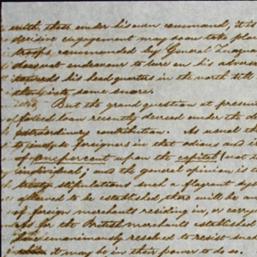 with, those under his own command, it is
decisive engagement may soon take place
troops commanded by General
does not endeavour to lure on his advers
towards his headquarters in the north till
into some snare.
But the grand question at present
forced loan recently decreed under the d
extraordinary contribution. As usual th
to foreigners in that odious and i
of one per cent upon the capital (not
individual; and the general opinion is t
treaty stipulations such a flagrant
allowed to be established, there will be an
of foreign merchants residing in, or carry
As for the British merchants established
have unanimously resolved to resist
it may be in their power to do so.